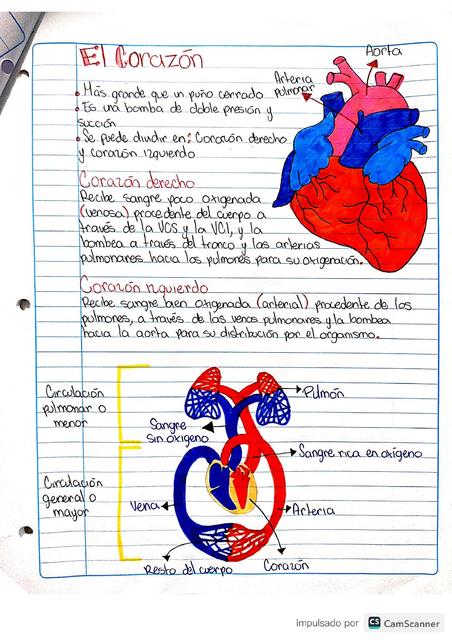 El Corazón
Aorta
Arteria
pulmonar
• Más grande que un puño cerrado
• Es una bomba de doble presión y
succión
• Se puede dividir en: Corazón derecho
y corazón izquierdo
Corazón derecho
Recibe sangre poco oxigenada
(venosa) procedente del cuerpo a
través de la VCS y la VCI, y la
bombea a través del tronco y las arterias
pulmonares hacia los pulmones para su oxigenación.
Corazón izquierdo
Recibe sangre bien oxigenada (arterial) procedente de los
pulmones, a través de las venas pulmonares y la bombea
hacia la aorta para su distribución por el organismo.
Circulación
pulmonar o
menor
Pulmón
Sangre
sin oxigeno
Sangre rica en oxígeno
Circulación
general o
mayor
Vena
Arteria
Resto del cuerpo
Corazón
impulsado por CS CamScanner